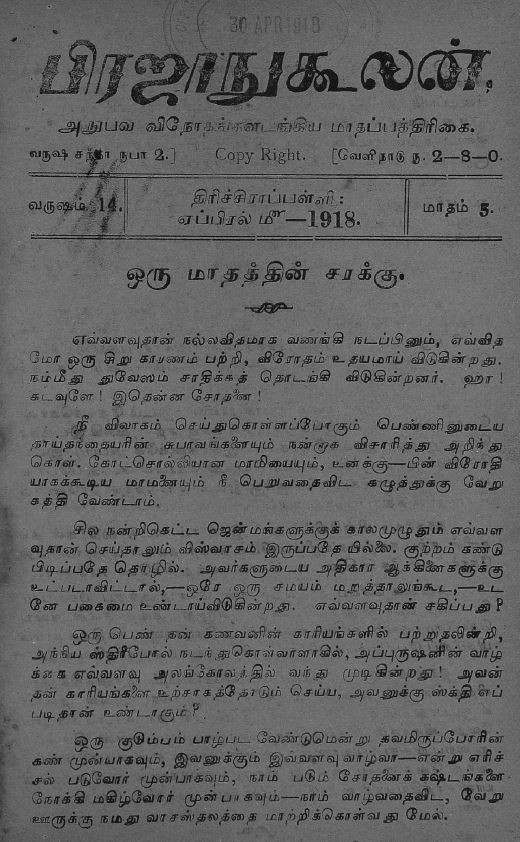 30 APR 1918
பிரஜாநுகூலன்.
அநுபவ விநோதங்களடங்கிய மாதப்பத்திரிகை.
வருஷ சந்தா ரூபா 2.] Copy Right. [வெளிநாடு ரூ. 2—8—0.
வருஷம் 14. திரிச்சிராப்பள்ளி: மாதம் 5.
ஏப்பிரல் மீ—1918.
ஒரு மாதத்தின் சரக்கு.
எவ்வளவுதான் நல்லவிதமாக வணங்கி நடப்பினும், எவ்வித
மோ ஒரு சிறு காரணம் பற்றி, விரோதம் உதயமாய் விடுகின்றது.
நம்மீது துவேஸம் சாதிக்கத் தொடங்கி விடுகின்றனர். ஹா!
கடவுளே! இதென்ன சோதனை!
நீ விவாகம் செய்துகொள்ளப்போகும் பெண்ணினுடைய
தாய்தந்தையரின் சுபாவங்களையும் நன்றாக விசாரித்து அறிந்து
கொள். கோட்சொல்லியான மாமியையும், உனக்கு—பின் விரோதி
யாகக்கூடிய மாமனையும் நீ பெறுவதைவிட கழுத்துக்கு வேறு
கத்தி வேண்டாம்.
சில நன்றிகெட்ட ஜென்மங்களுக்குக் காலமுழுதும் எவ்வள
வுதான் செய்தாலும் விஸ்வாசம் இருப்பதே யில்லை. குற்றம் கண்டு
பிடிப்பதே தொழில். அவர்களுடைய அதிகார ஆக்கினைகளுக்கு
உட்படாவிட்டால்,—ஒரே ஒரு சமயம் மறந்தாலுங்கூட,—உட
னே பகைமை உண்டாய்விடுகின்றது. எவ்வளவுதான் சகிப்பது?
ஒரு பெண் தன் கணவனின் காரியங்களில் பற்றுதலின்றி,
அந்நிய ஸ்திரீபோல் நடந்துகொள்வாளாகில், அப்புருஷனின் வாழ்
க்கை எவ்வளவு அலங்கோலத்தில் வந்து முடிகின்றது! அவன்
தன் காரியங்களை உற்சாகத்தோடும் செய்ய, அவனுக்கு ஸக்தி எப்
படிதான் உண்டாகும்?
ஒரு குடும்பம் பாழ்பட வேண்டுமென்று தவமிருப்போரின்
கண் முன்பாகவும், இவனுக்கும் இவ்வளவு வாழ்வா—என்று எரிச்
சல் படுவோர் முன்பாகவும், நாம் படும் சோதனைக் கஷ்டங்களை
நோக்கி மகிழ்வோர் முன்பாகவும்—நாம் வாழ்வதைவிட, வேறு
ஊருக்கு நமது வாசஸ்தலத்தை மாற்றிக்கொள்வது மேல்.